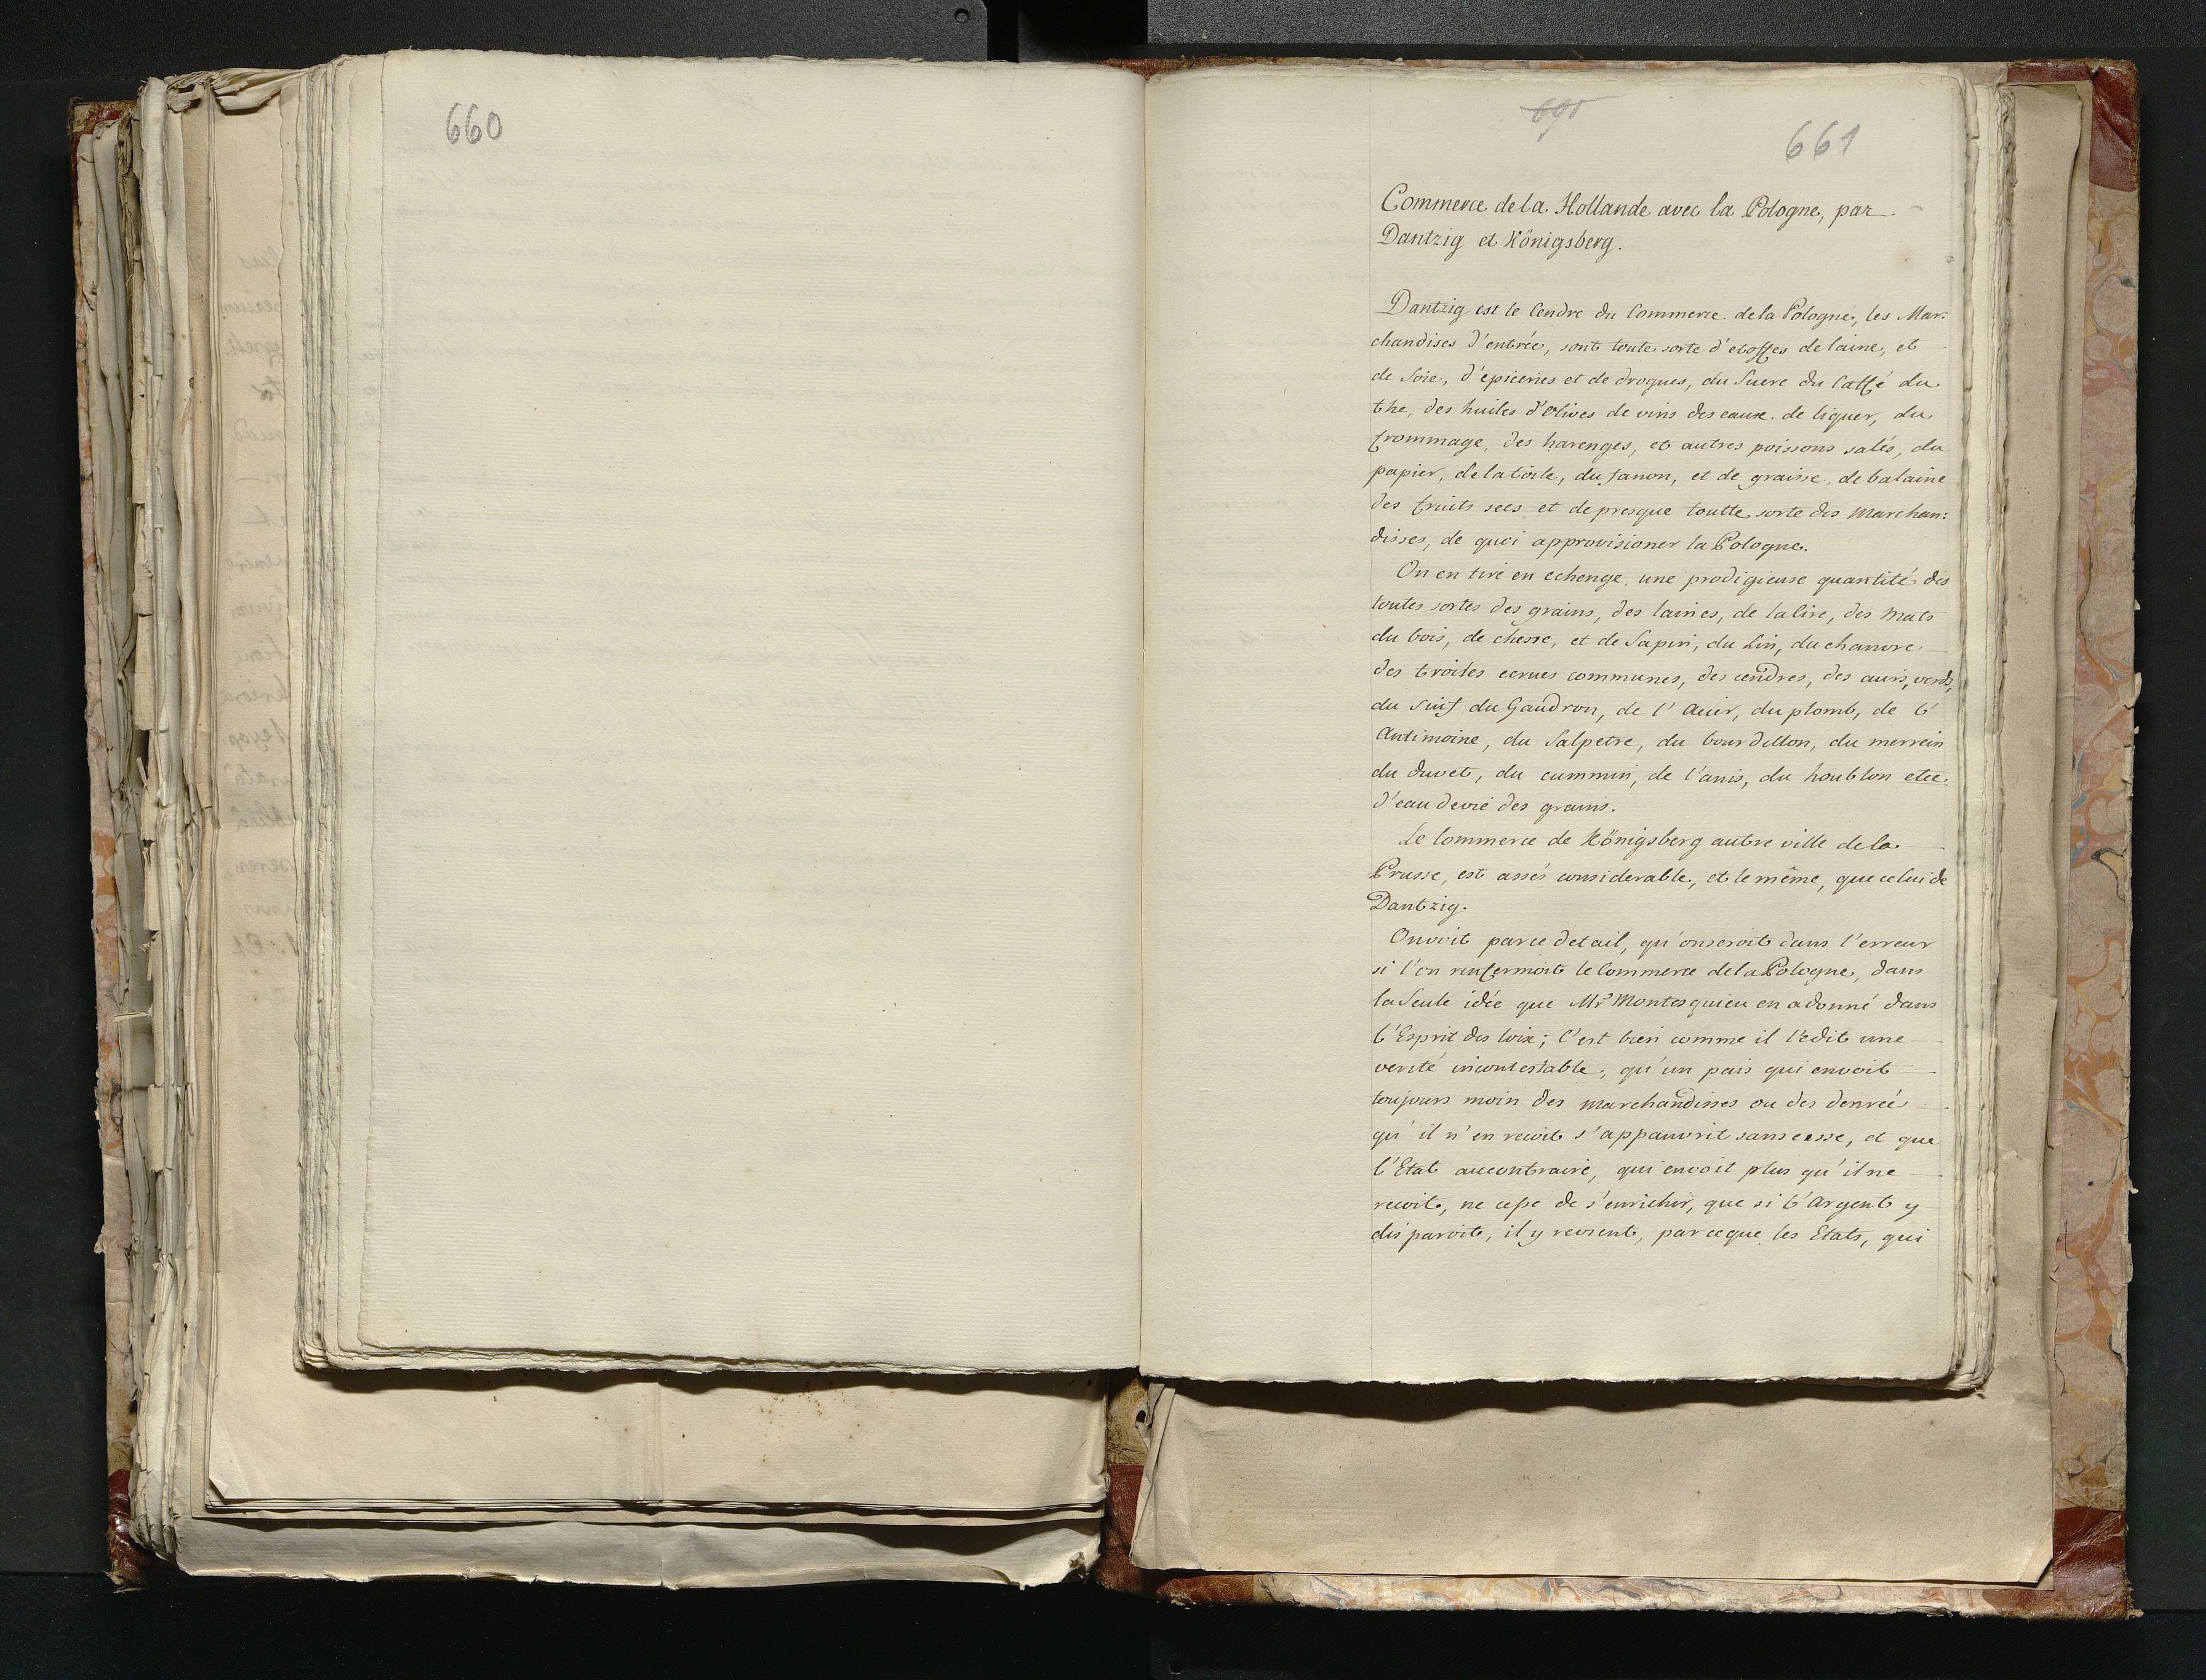 660
691
661
Commerce de la Hollande avec la Pologne, par
Dantzig et Königsberg.
Dantzig est le Cendre du Commerce de la Pologne, les Mar:
chandises d'entrée, sont toute sorte d'etoffes de laine, et
de Soie, d'epiceries et de drogues, du Sucre du Caffé du
the, des huiles d'Olives de vins des eaux de liquer, du
frommage, des harenges, et autres poissons salés, du
papier, de la toile, du fanon, et de graisse, de balaine
des fruits secs et de presque toutte sorte des Marchan:
disses, de quoi approvisioner la Pologne.
On en tire en echenge, une prodigieuse quantité des
toutes sortes des grains, des laines, de la Cire, des Mats
du bois, de chesne, et de Sapin, du Lin, du chanvre
des troiles ecrues communes, des cendres, des cuirs, verds,
du suif du Gaudron, de l'Acier, du plomb, de l'
Antimoine, du Salpetre, du bourdillon, du merrein
du duvet, du cummin, de l'anis, du houblon etce.
d'eau de vie des grains.
Le Commerce de Königsberg autre ville de la
Prusse, est assés considerable, et le même, que celui de
Dantzig.
On voit par ce detail, qu'on seroit dans l'erreur
si l'on renfermoit le Commerce de la Pologne, dans
la Seule idée que Mr Montesquieu en a donné dans
l'Esprit des loix; C'est bien comme il le dit une
verité incontestable, qu'un pais qui envoit
toujours moin des marchandisses ou des denreés
qu'il n'en recoit s'appauvrit sans cesse, et que
l'Etat au contraire, qui envoit plus qu'il ne
recoit, ne cesse de s'enrichir, que si l'Argent y
disparoit, il y revient, parceque les Etats, qui